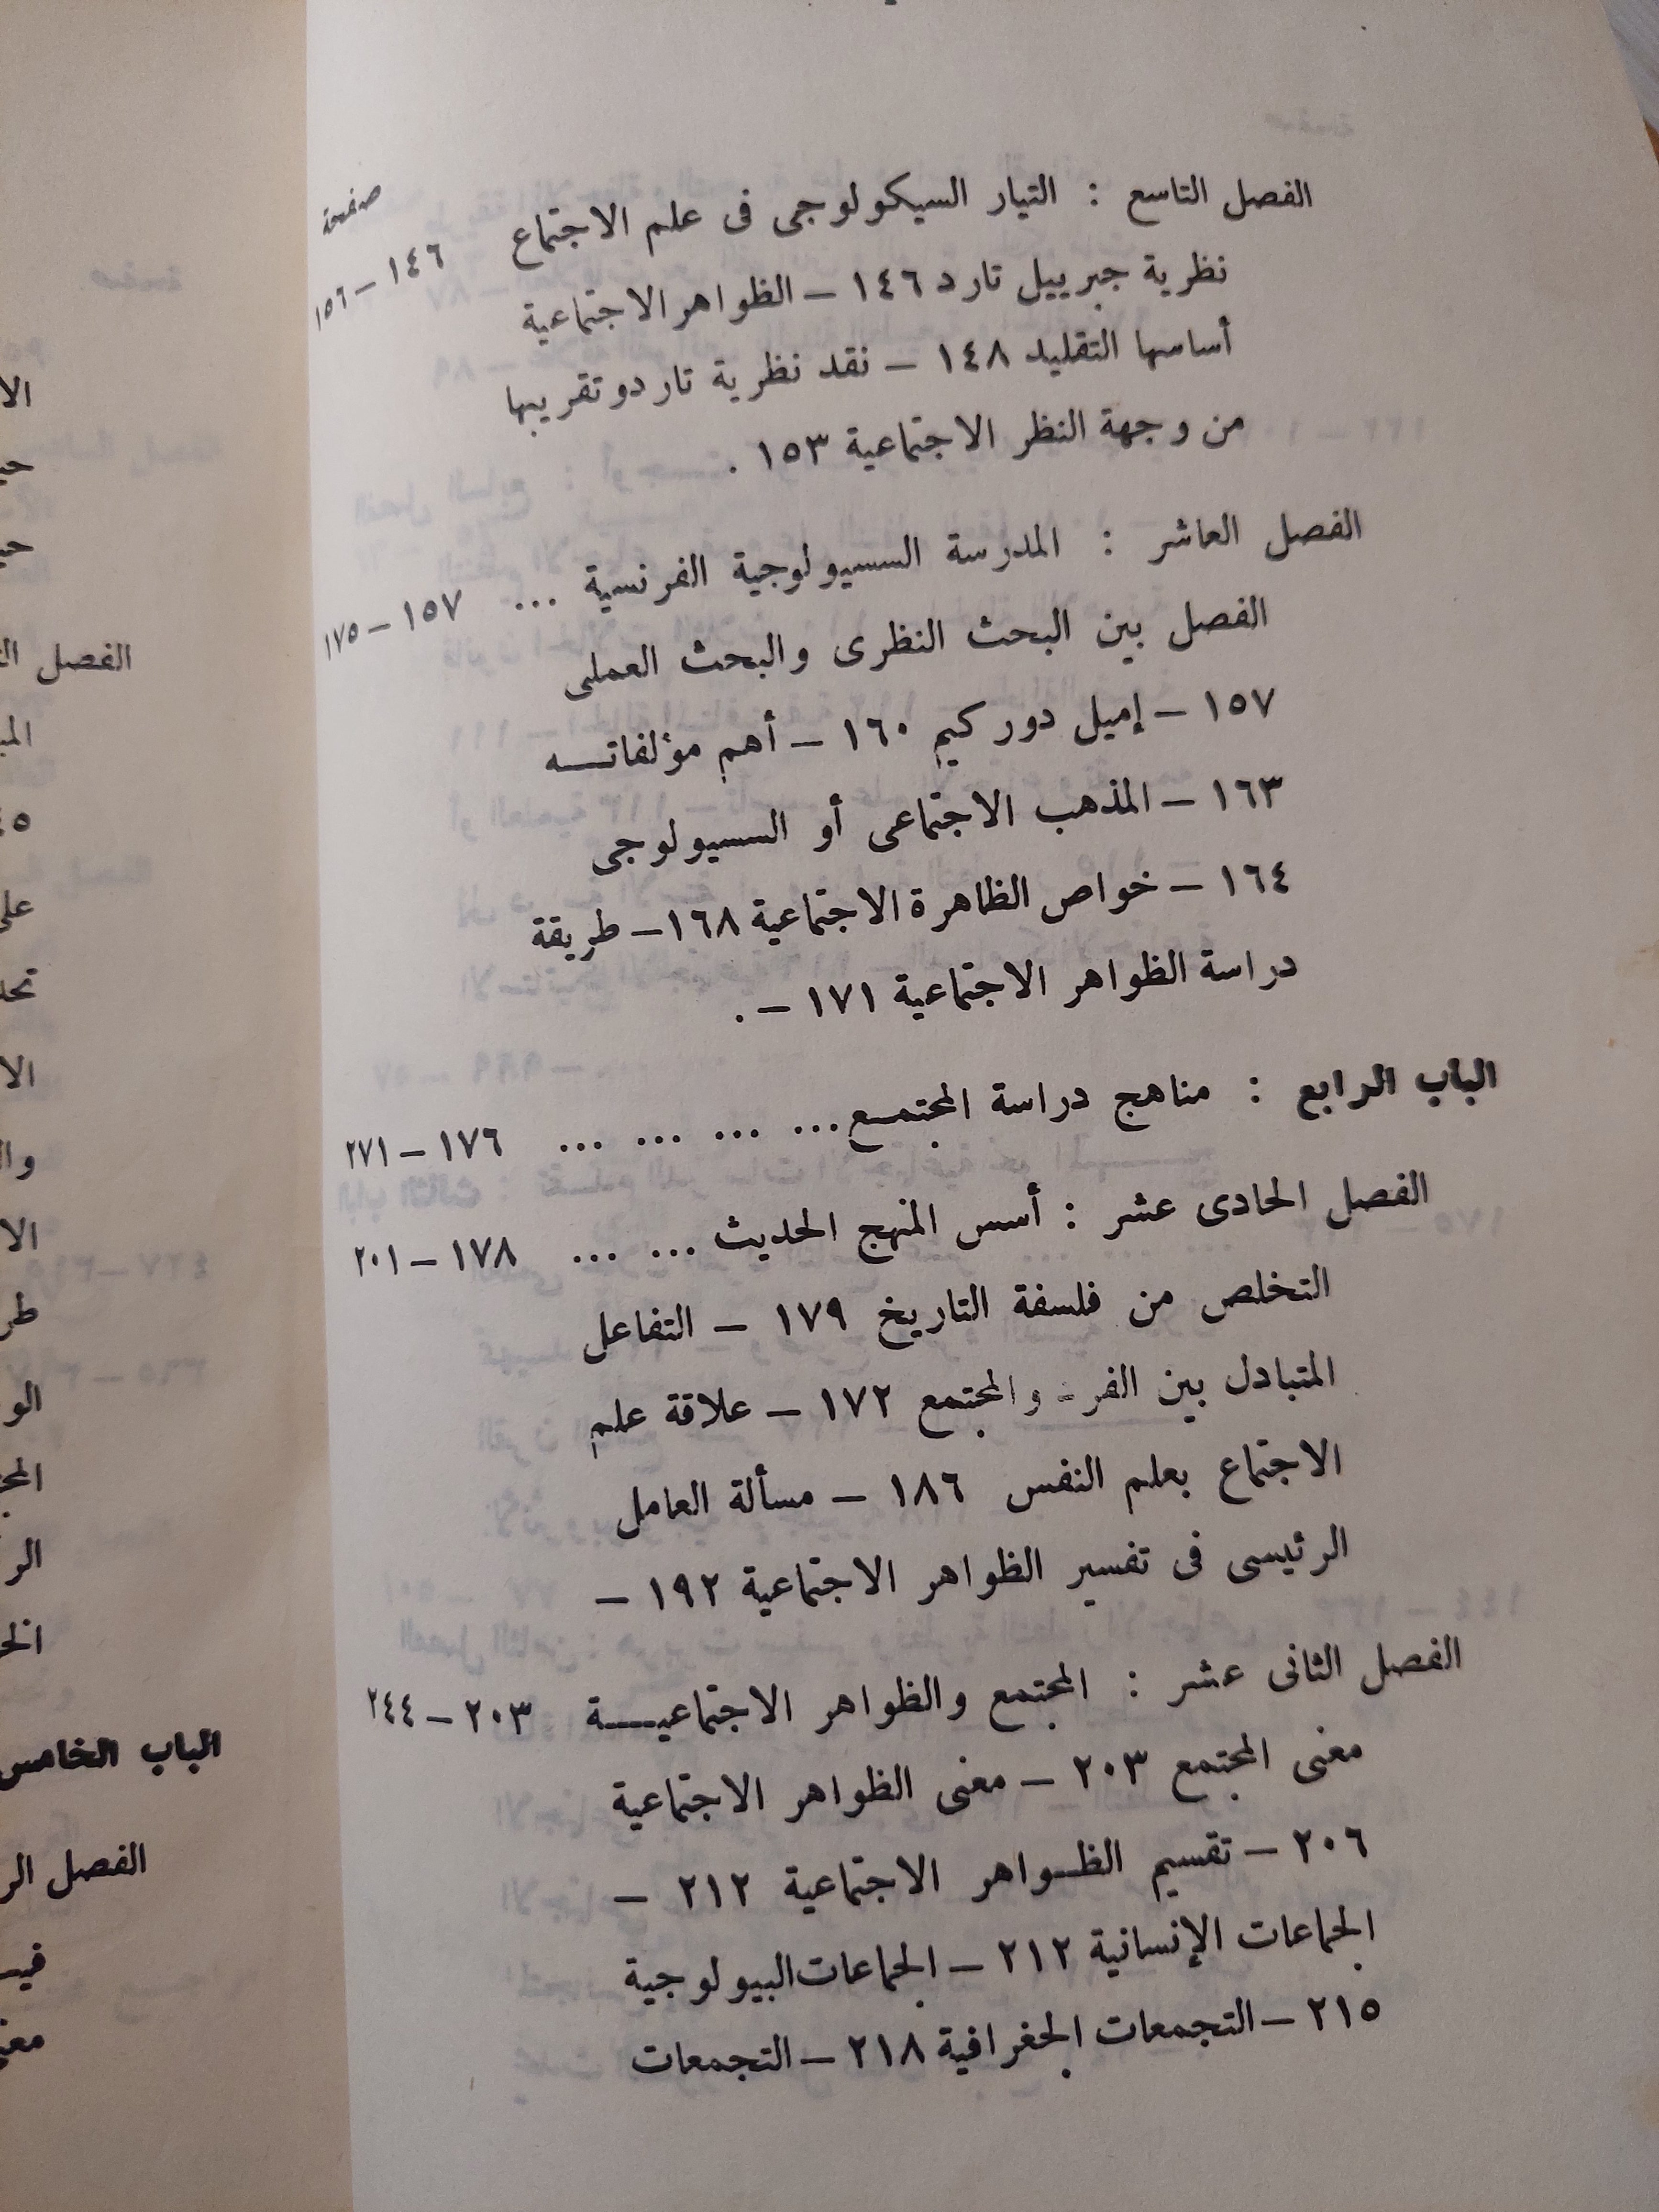 صفحة
الفصل التاسع : التيار السيكولوجى فى علم الاجتماع ١٤٦ – ١٥٦
نظرية جبرييل تارد ١٤٦ – الظواهر الاجتماعية
أساسها التقليد ١٤٨ – نقد نظرية تارد وتقريبها
من وجهة النظر الاجتماعية ١٥٣ .
الفصل العاشر : المدرسة السسيولوجية الفرنسية ... ١٥٧ – ١٧٥
الفصل بين البحث النظرى والبحث العملى
١٥٧ – إميل دور كيم ١٦٠ – أهم مؤلفاتـــه
١٦٣ – المذهب الاجتماعى أو السسيولوجى
١٦٤ – خواص الظاهرة الاجتماعية ١٦٨ – طريقة
دراسة الظواهر الاجتماعية ١٧١ – .
الباب الرابع : مناهج دراسة المجتمـع ... ... ... ... ١٧٦ – ٢٧١
الفصل الحادى عشر : أسس المنهج الحديث ... ... ١٧٨ – ٢٠١
التخلص من فلسفة التاريخ ١٧٩ – التفاعل
المتبادل بين الفرد والمجتمع ١٧٢ – علاقة علم
الاجتماع بعلم النفس ١٨٦ – مسألة العامل
الرئيسى فى تفسير الظواهر الاجتماعية ١٩٢ –
الفصل الثانى عشر : المجتمع والظواهر الاجتماعيـــة ٢٠٣ – ٢٤٤
معنى المجتمع ٢٠٣ – معنى الظواهر الاجتماعية
٢٠٦ – تقسيم الظـواهر الاجتماعية ٢١٢ –
الجماعات الإنسانية ٢١٢ – الجماعات البيولوجية
٢١٥ – التجمعات الجغرافية ٢١٨ – التجمعات
الفصل
على
الباب الخامس
الفصل